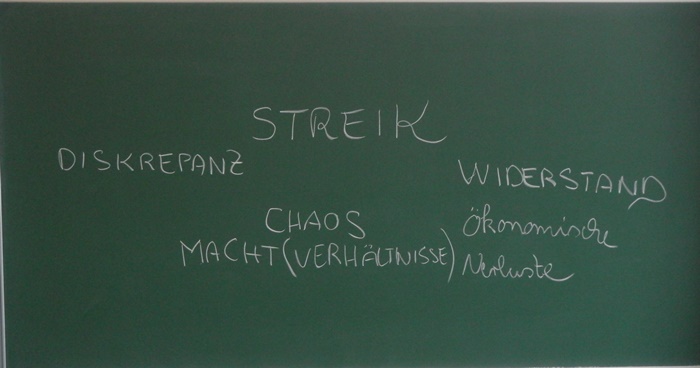 STREIK
DISKREPANZ
WIDERSTAND
CHAOS
MACHT (VERHÄLTNISSE)
ökonomische
Verluste